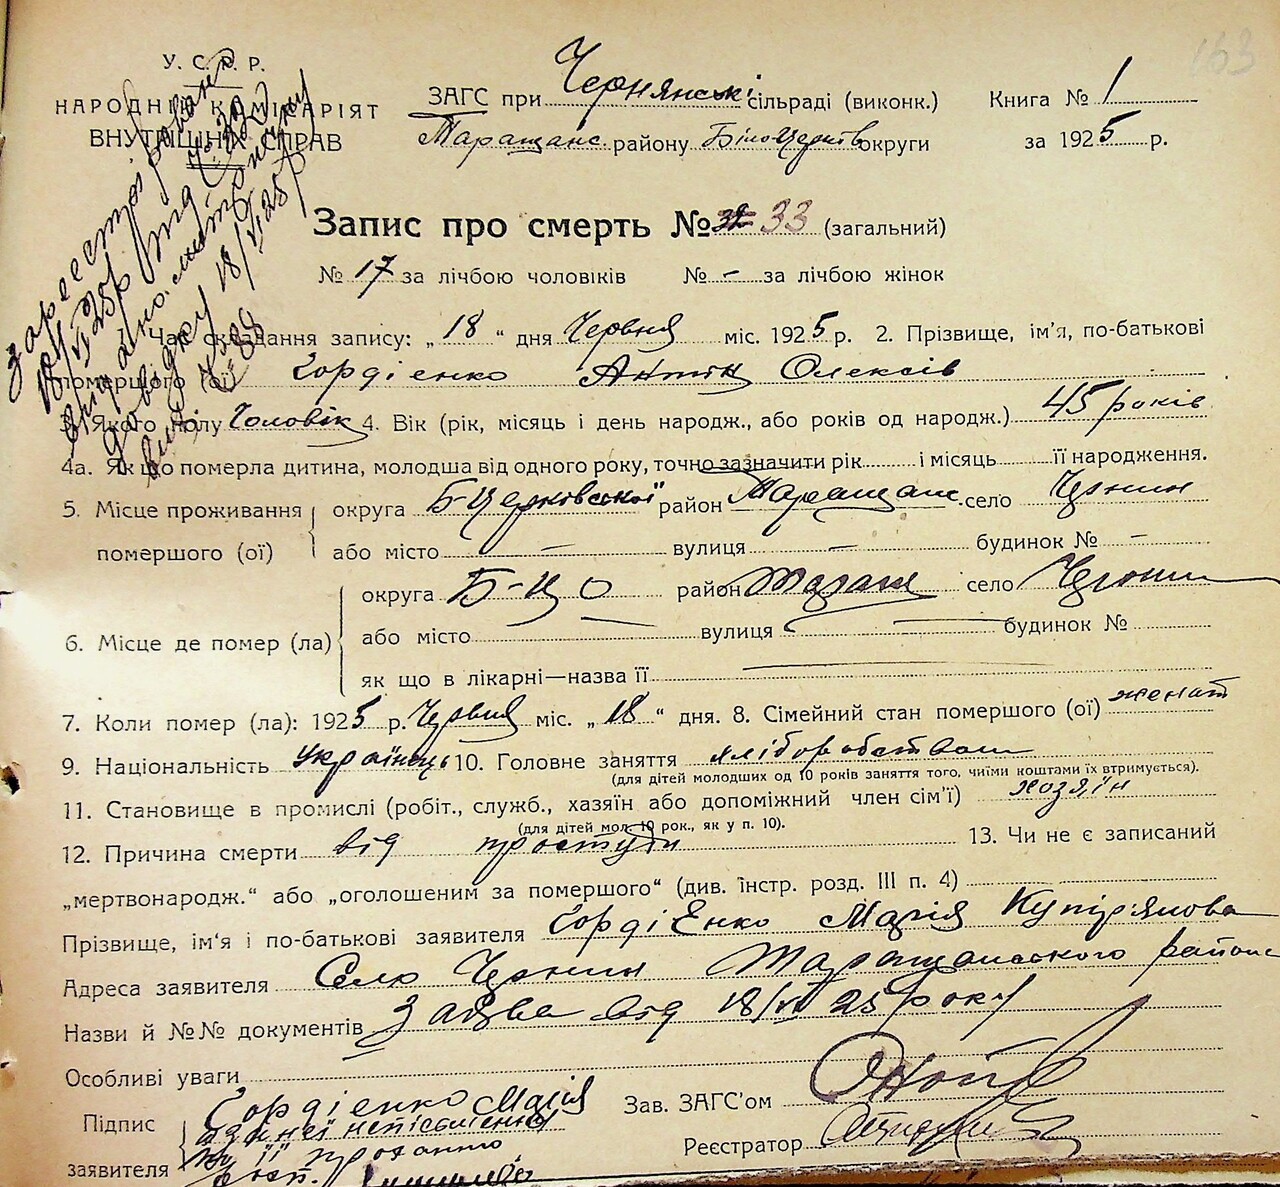 163
У. С. Р. Р.
НАРОДНІЙ КОМІСАРІЯТ
ВНУТРІШНІХ СПРАВ
ЗАГС при Чернянські сільраді (виконк.) Книга № 1
Таращанс. району Білоцерків округи за 1925 р.
Запис про смерть № 32 33 (загальний)
№ 17 за лічбою чоловіків № - за лічбою жінок
Час складання запису: „18“ дня Червня міс. 1925 р. 2. Прізвище, ім'я, по-батькові
помершого (ої) Гордіенко Антін Олексів
3. Якого полу Чоловік 4. Вік (рік, місяць і день народж., або років од народж.) 45 років
4а. Як що померла дитина, молодша від одного року, точно зазначити рік і місяць її народження.
5. Місце проживання округа Б-Церківської район Таращанс. село Чернин
помершого (ої) або місто — вулиця — будинок № -
6. Місце де помер (ла) округа Б-ЦО район Таращ село Чернин
або місто вулиця будинок №
як що в лікарні—назва її
7. Коли помер (ла): 1925 р. Червня міс. „18“ дня. 8. Сімейний стан помершого (ої) женат
9. Національність Українець 10. Головне заняття хліборобством
(для дітей молодших од 10 років заняття того, чиїми коштами їх втримується).
11. Становище в промислі (робіт., служб., хазяїн або допоміжний член сім'ї) хозяїн
(для дітей мол. 10 рок., як у п. 10).
12. Причина смерти від простуди 13. Чи не є записаний
„мертвонародж.“ або „оголошеним за помершого“ (див. інстр. розд. III п. 4)
Прізвище, ім'я і по-батькові заявителя Гордіенко Марія Купір'янова
Адреса заявителя Село Чернин Таращанського района
Назви й №№ документів Заява від 18/VI 25 року
Особливі уваги
Підпис заявителя Гордіенко Марія
а за неї неписьменну
по її проханню
Зав. ЗАГС'ом
Реєстратор